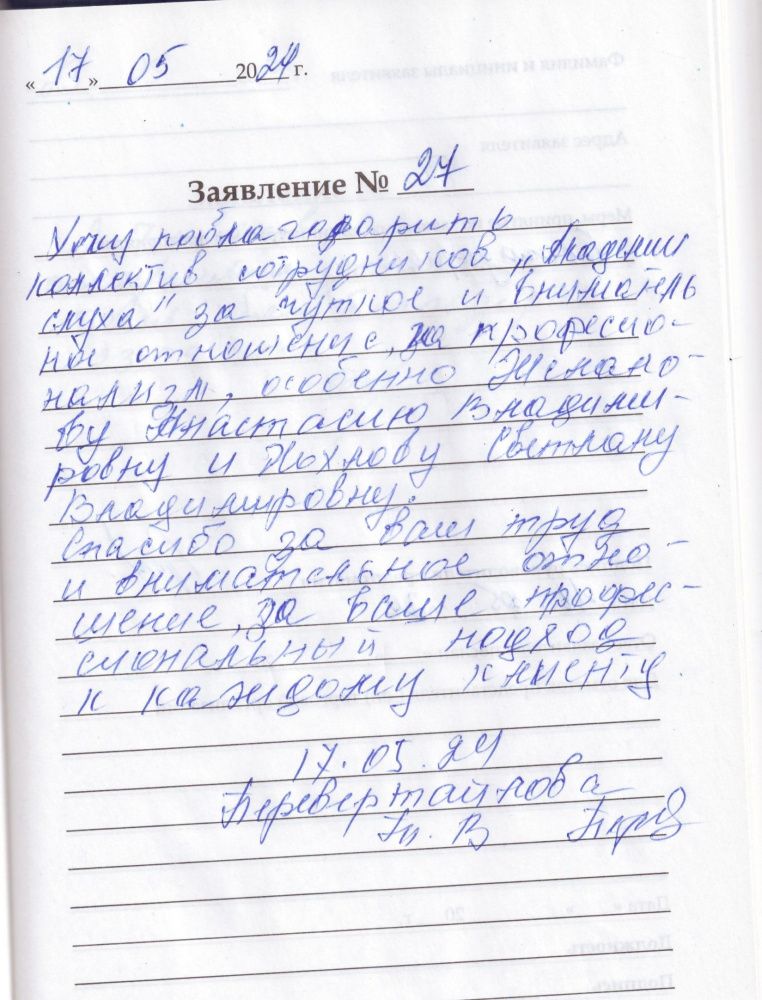 «17» 05 2024 г.
Заявление № 27
Хочу поблагодарить
коллектив сотрудников „Академии
слуха" за чуткое и вниматель
ное отношение, за професио-
нализм, особенно
Анастасию Владими-
ровну и Светлану
Владимировну.
Спасибо за ваш труд
и внимательное отно-
шение, за ваше профес-
сиональный подход
к каждому клиенту.
17.05.24